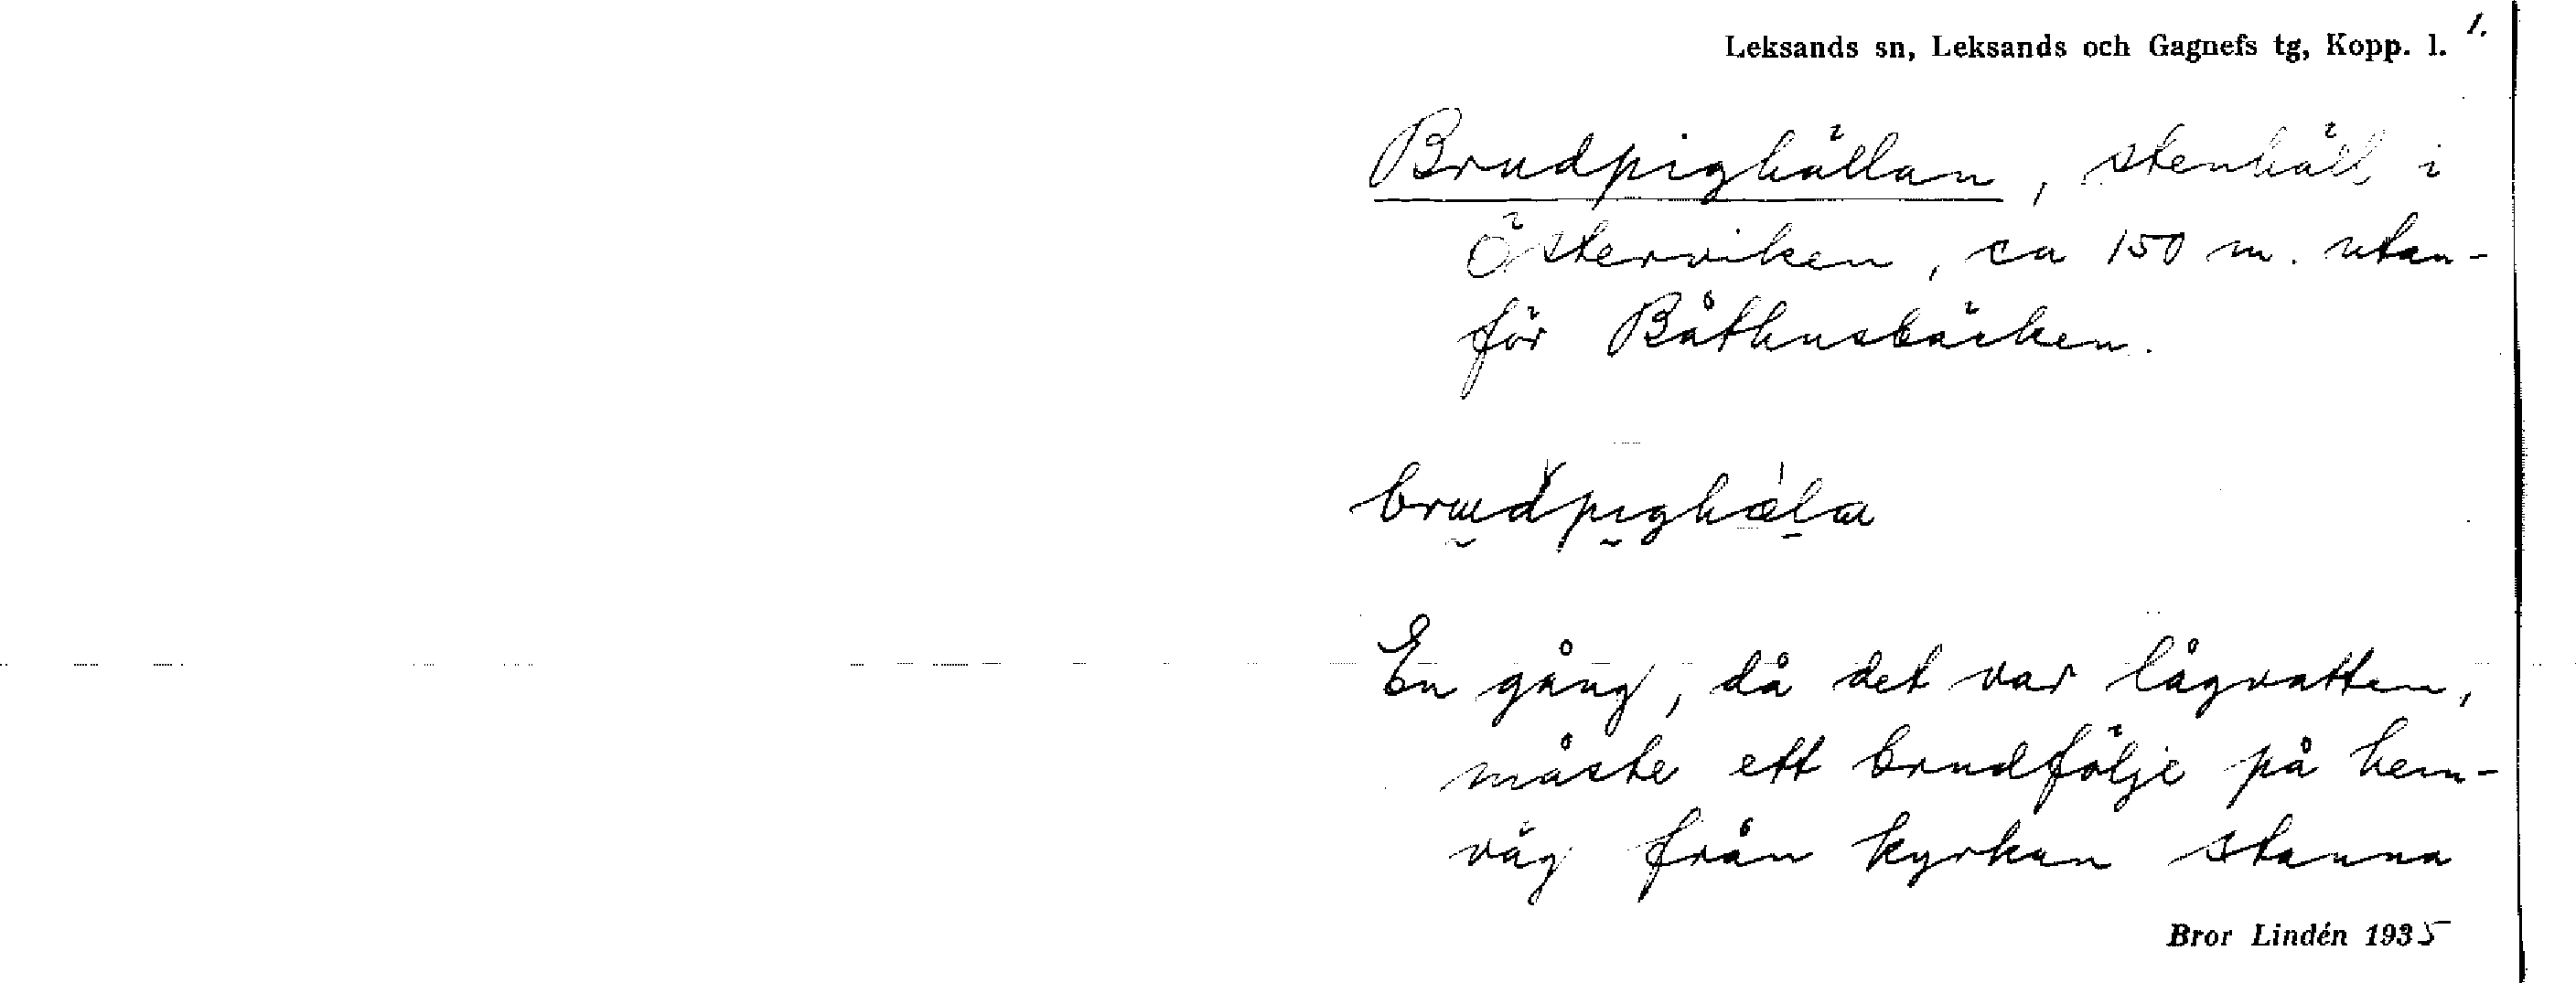 Leksands sn, Leksands och Gagnefs tg, Kopp. l. 1.
Brudpighällan, stenhäll i
Österviken, ca 150 m. utan-
för Båthusbäcken.
En gång, då det var lågvatten,
måste ett brudfölje på hem-
väg från kyrkan stanna
Bror Lindén 1935